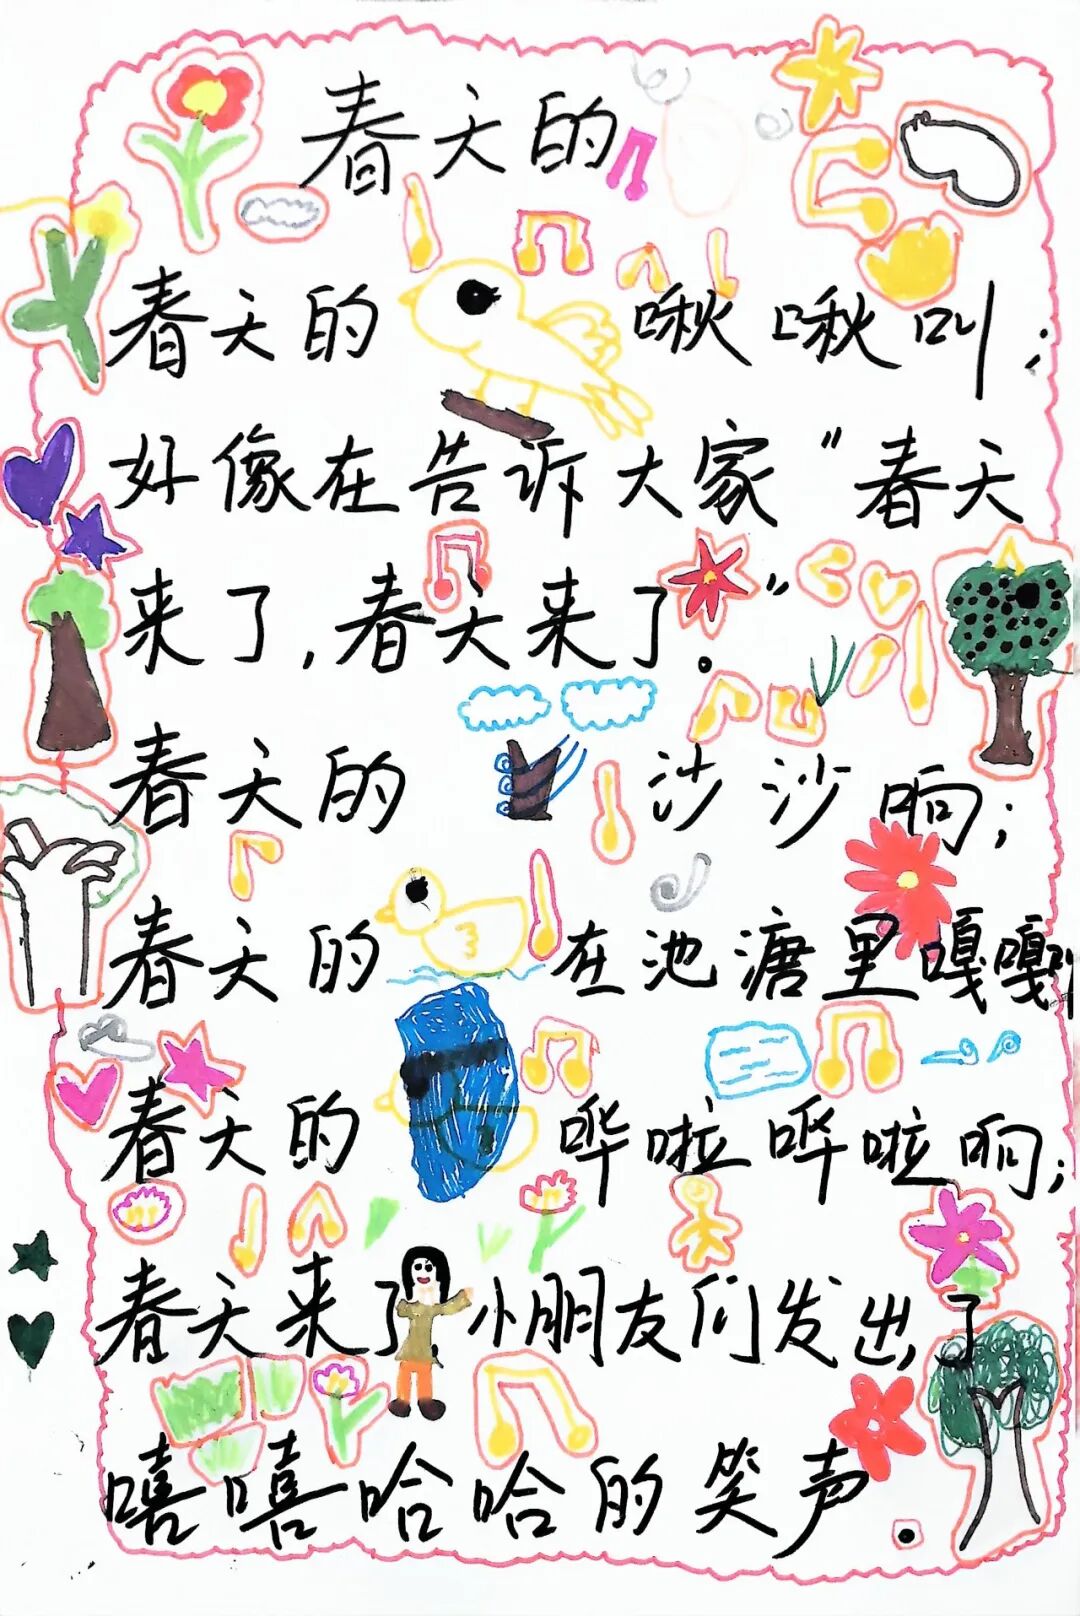 春天的
春天的啾啾叫；
好像在告诉大家“春天
来了，春天来了。”
春天的沙沙响；
春天的在池溏里嘎嘎叫
春天的哗啦哗啦响；
春天来了，小朋友们发出了
嘻嘻哈哈的笑声.